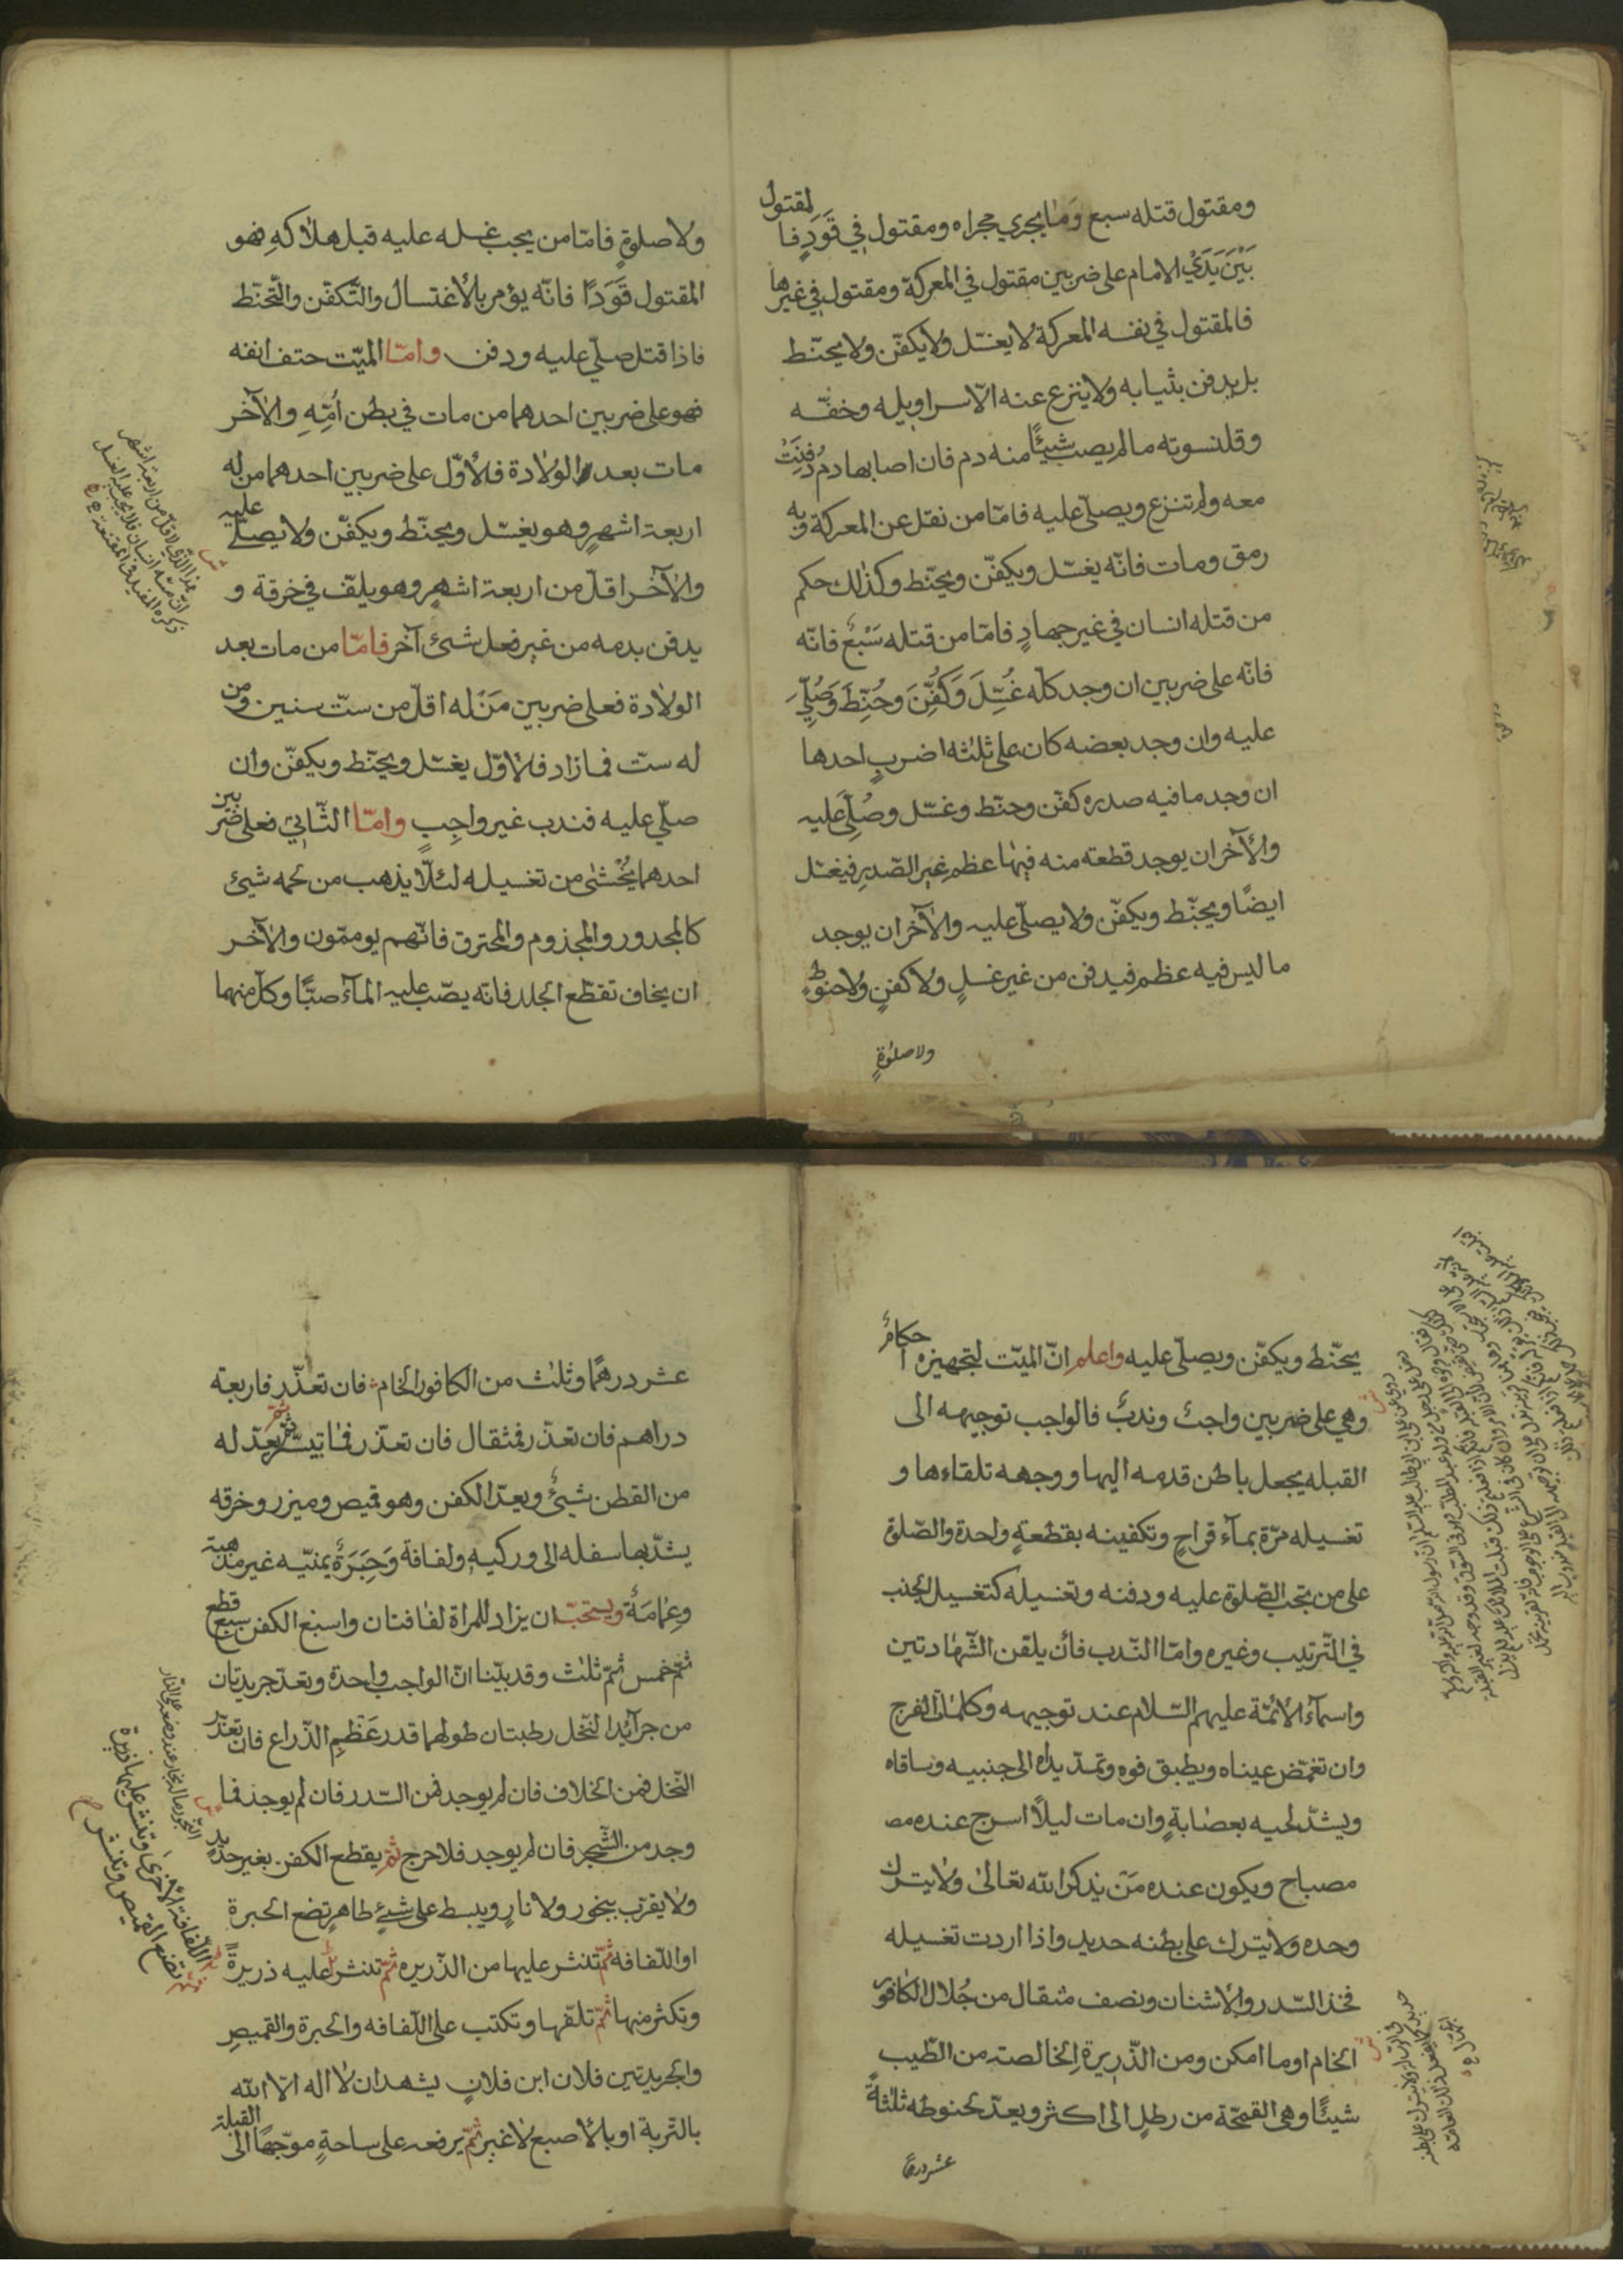 ومقتول قتله سبع وَمٰا يجري مجراه ومقتول في قَوَدٍ فالمقتول
بَيْنَ يَدَيْ الامام على ضربين مقتول في المعركة ومقتول في غيرها
فالمقتول في نفسه المعركة لا يغسّل ولا يكفّن ولا يحنّط
بل يدفن بثيابه ولا ينزع عنه الّا سراويله وخفّه
وقلنسوته ما لم يصب شيئًا منه دم فان اصابها دمٌ دُفِنَتْ
معه ولم تنزع ويصلّى عليه فامّا من نقل عن المعركة وبه
رمق ومات فانّه يغسّل ويكفّن ويحنّط وكذلك حكم
من قتله انسان في غير جهادٍ فامّا من قتله سَبُعٌ فانّه
فانّه على ضربين ان وجد كلّه غُسِّلَ وَكُفِّنَ وحُنِّطَ وَصُلِّيَ
عليه وان وجد بعضه كان على ثلثه اضربٍ احدها
ان وجد ما فيه صدره كفّن وحنّط وغسّل وصُلِّيَ عليه
والآخر ان يوجد قطعته منه فيها عظم غير الصّدرِ فيغسّل
ايضًا ويحنّط ويكفّن ولا يصلّى عليه والآخر ان يوجد
ما ليس فيه عظم فيدفن من غير غسلٍ ولا كفنٍ ولا حنوطٍ
ولا صلوةٍ
ولا صلوةٍ فامّا من يجب غسله عليه قبل هلاكهِ فهو
المقتول قَوَدًا فانّه يؤمر بالأغتسال والتّكفّن والتّحنّط
فاذا قتل صلّي عليه ودفن وامّا الميّت حتف انفه
فهو على ضربين احدهما من مات في بطن اُمّهِ والآخر
مات بعد الولادة فالأوّل على ضربين احدهما من له
اربعة اشهرٍ وهو يغسّل ويحنّط ويكفّن ولا يصلّى عليه
والآخر اقلّ من اربعة اشهرٍ وهو يلفّ في خرقة و
يدفن بدمه من غير فعل شيئ آخر فامّا من مات بعد
الولادة فعلى ضربين مَنْ له اقلّ من ستّ سنين ومن
له ست فما زاد فالأوّل يغسّل ويحنّط ويكفّن وان
صلّي عليه فندب غير واجِبٍ وامّا الثّاني فعلى ضربين
احدهما يُخْشٰى من تغسيله لئلّا يذهب من لحمه شيئ
كالمجدور والمجذوم والمحترق فانّهم يوممّون والآخر
ان يخاف تقطّع الجلد فانّه يصّب عليه المآء صبًّا وكلّ منهما
يحنّط ويكفّن ويصلّى عليه واعلم انّ الميّت لتجهيزه احكامٌ
وهي على ضربين واجبٌ وندبٌ فالواجب توجيهه الى
القبله يجعل باطن قدمه اليها ووجهه تلقاءها و
تغسيله مرّة بمآء قراحٍ وتكفينه بقطعةٍ واحدة والصّلوة
على من يجب الصّلوة عليه ودفنه وتغسيله كتغسيل الجنب
في الترتيب وغيره وامّا النّدب فأن يلقن الشّهادتين
واسمآء الأئمّة عليهم السّلام عند توجيهه وكلمات الفرج
وان تغمّض عيناه ويطبق فوه وتمدّ يداه الى جنبيه وساقاه
ويشدّ لحيه بعصابةٍ وان مات ليلًا اسرج عنده مصـ
مصباح ويكون عنده مَنْ يذكر الله تعالىٰ ولا يترك
وحده ولا يترك على بطنه حديد واذا اردت تغسيله
فخذ السّدر والأشنان ونصف مثقال من جُلال الكافور
الخام او ما امكن ومن الذّريرة الخالصة من الطّيب
شيئًا وهي القمحّة من رطلٍ الى اكثر ويعدّ لحنوطه ثلثةَ
عشر درهمًا
عشر درهمًا وثلث من الكافور الخام فان تعذّر فاربعة
دراهم فان تعذّر فمثقال فان تعذّر فما تيسّر ثمّ يعدّ له
من القطن شيئٌ ويعدّ الكفن وهو قميص وميزر وخرقه
يشدّ بها سفله الى وركيه ولفافة وَحِبَرَةٌ يمنيّه غير مذهبة
وعِمٰامَةٌ ويستحبّ ان يزاد للمراة لفافتان واسبغ الكفن سبع قطع
ثمّ خمس ثمّ ثلث وقد بيّنا انّ الواجب واحدة وتعدّ جريدتان
من جرآئد النّخل رطبتان طولهما قدر عَظْمِ الذّراع فان تعذّر
النّخل فمن الخلاف فان لم يوجد فمن السّدر فان لم يوجد فما
وجد من الشّجر فان لم يوجد فلا حرج ثمّ يقطع الكفن بغير حديدٍ
ولا يقرّب ببخور ولا نارٍ ويبسط على شيئٍ طاهرٍ تضع الحبرة
او اللّفافه ثمّ تنثر عليها من الذّريره ثمّ تنثر عليه ذريرةً
وتكثر منها ثمّ تلفّها وتكتب على اللّفافه والحبرة والقميصِ
والجريدتين فلان ابن فلانٍ يشهد ان لا اله الّا الله
بالتربة او بالأصبع لا غير ثمّ يرفعه على ساحةٍ موجّهًا الى القبلة
اللّفافة الأخرى وتنثر عليها ذريرة
تضع القميص وتنثر